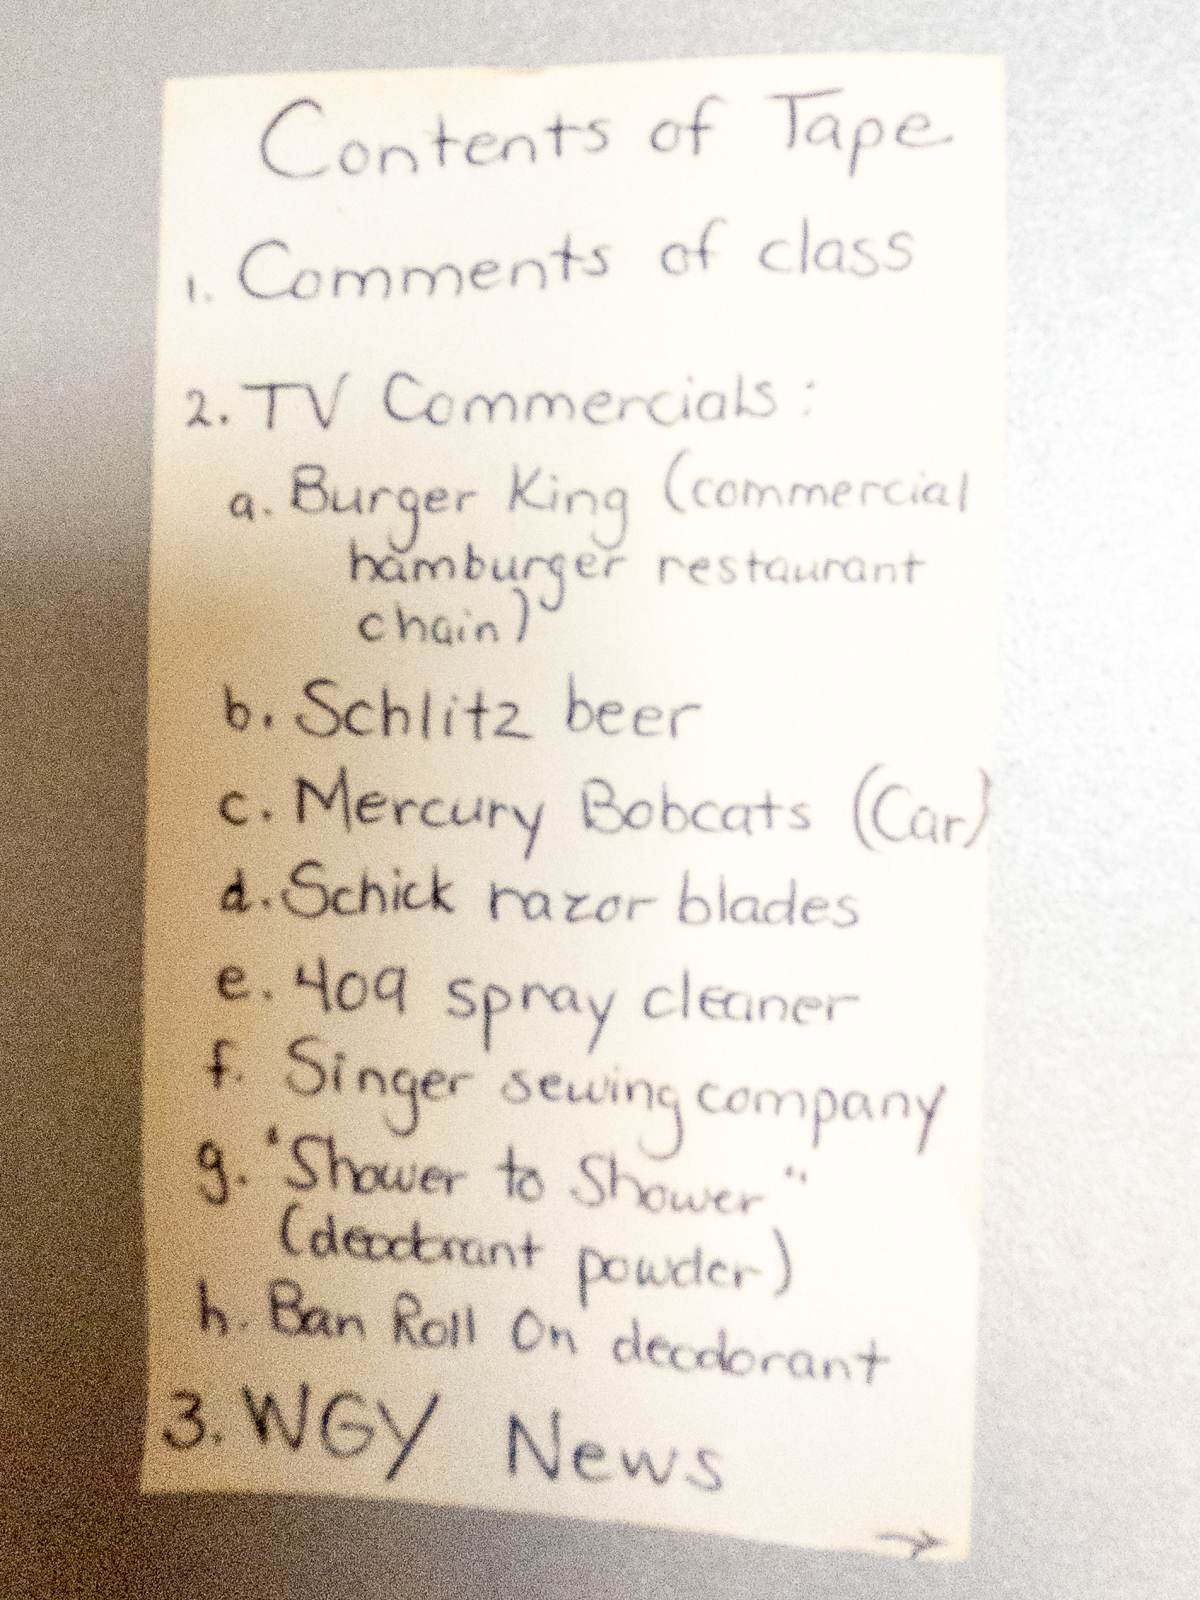 Contents of Tape
1. Comments of class
2. TV Commercials:
a. Burger King (commercial
hamburger restaurant
chain)
b. Schlitz beer
c. Mercury Bobcats (Car)
d. Schick razor blades
e. 409 spray cleaner
f. Singer sewing company
g. "Shower to Shower"
(deodorant powder)
h. Ban Roll On deodorant
3. WGY News
→